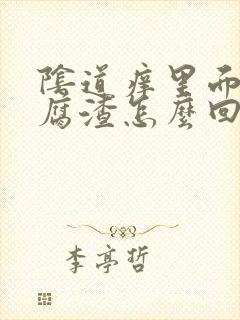 陰道癢里而
腐渣怎麼回
李亭哲